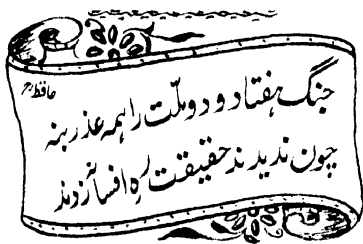 حافظ رح
جنگ ہفتاد و دو ملّت را ہمہ عذر بنہ
چون ندیدند حقیقت رہِ افسانہ زدند